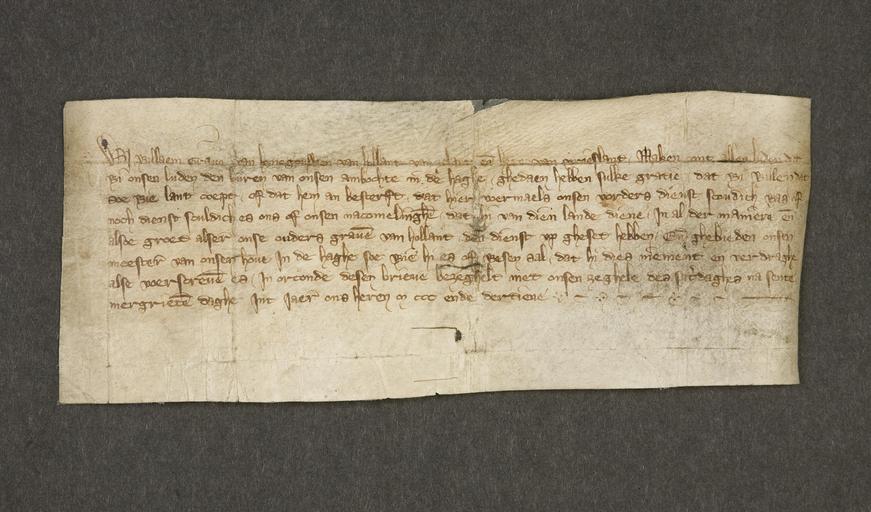 Wi willaem Grave van henegouwen van hollant van zelant en̄ here van vrieslant. Maken cont allen luden dat
wi onsen luden den buren van onsen ambochte in die haghe, ghedaen hebben sulke gratie, dat wi willen dat
soe wie lant coept, of dat hem an besterft, dat hier voermaels onsen vorders dienst sculdich was of
noch dienst sculdich es ons of onsen nacomelinghē, dat hi van dien lande diene, in al der manieren en̄
alsoe groet alser onse ouders gravē van hollant den dienst up gheset hebben. En̄ ghebieden onsen
meester van onsen hove in de haghe soe wie hi es of wesen sal, dat hi dies niement en verdraghe
alse voerscrevē es, In orconde desen brieve bezeghelt met onsen zeghele des daghes na sente
mergrietē daghe Int jaer ons heren m ccc ende dertiene